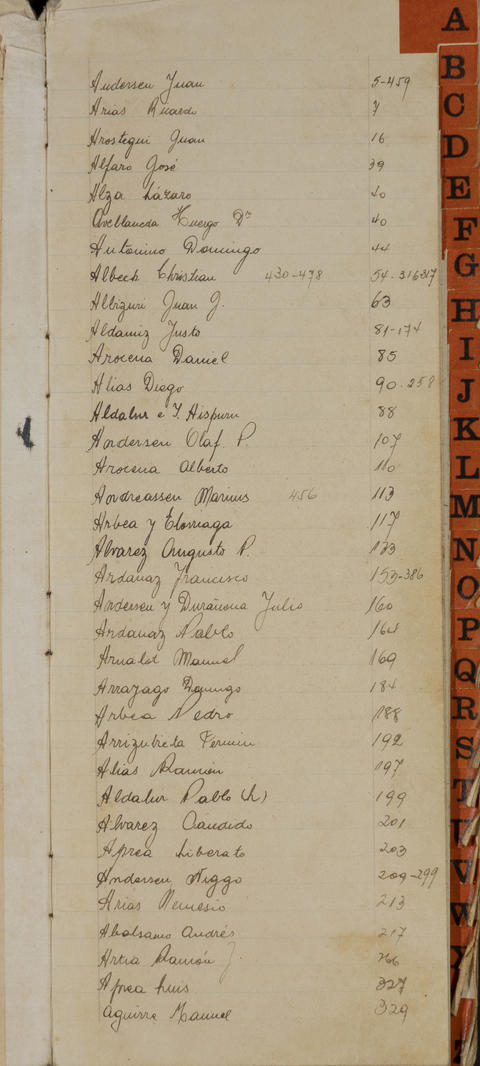 A
B
C
D
E
F
G
H
I
J
K
L
M
N
O
P
Q
R
S
T
U
V
W
X
Z
Andersen Juan 5-459
Arias Ricardo 7
Arostegui Juan 16
Alfaro José 39
Alza Lázaro 40
Avellaneda Huergo Dr 40
Antonino Domingo 44
Albeck Christian 430-478 54-316-317
Albizuri Juan J. 63
Aldamiz Justo 81-174
Arocena Daniel 85
Alias Diego 90-258
Aldalur e Y. Aispuru 88
Andersen Olaf P. 107
Arocena Alberto 110
Andreassen Marius 456 113
Arbea y Elorriaga 117
Alvarez Augusto P. 133
Ardanaz Francisco 153-386
Andersen y Durañona Julio 160
Ardanaz Pablo 164
Arnalot Manuel 169
Arrayago Domingo 184
Arbea Pedro 188
Arrizubieta Fermin 192
Alias Ramón 197
Aldalur Pablo (h) 199
Alvarez Candido 201
Aprea Liberato 203
Andersen Niggo 209-299
Arias Nemesio 213
Abalsamo Andrés 217
Artia Ramón J. 266
Aprea Luis 327
Aguirre Manuel 329